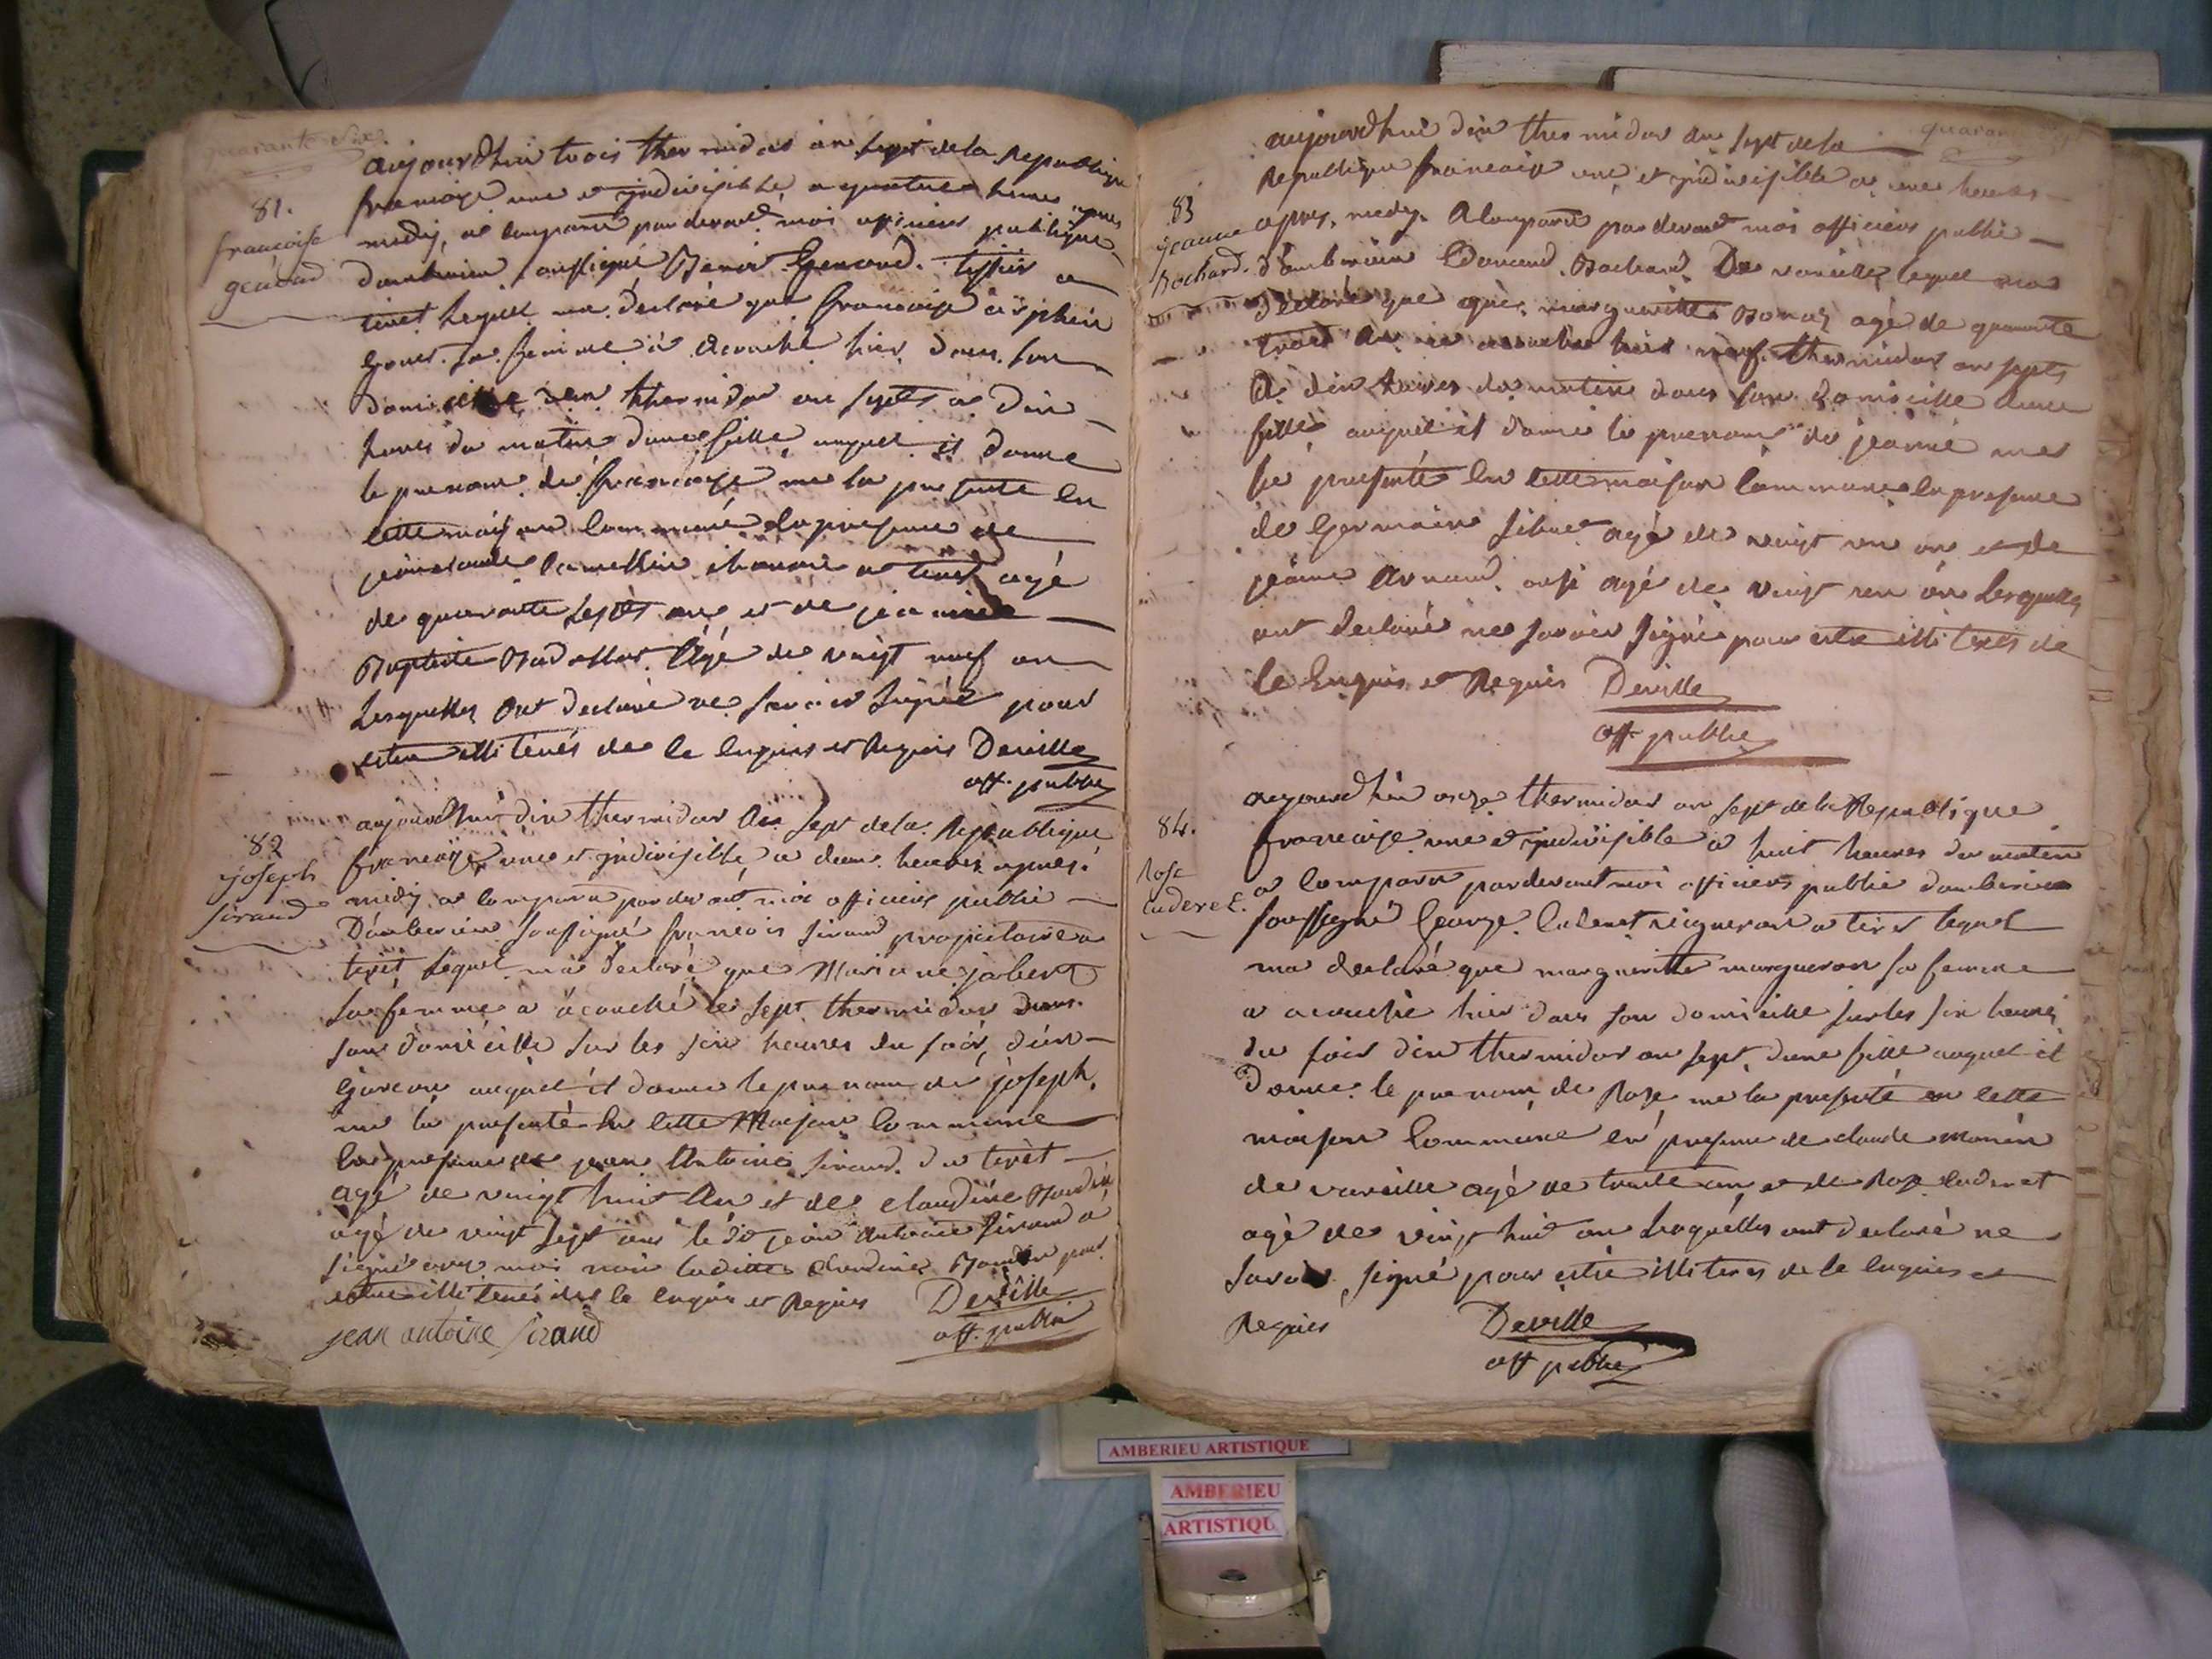 quarante six
aujourdhui trois thermidor an sept de la Republique
81.
francoise
genoud
francoise une et jndivisible, a quatre heures apres
midy, a comparu par devant moi officier publique
damberieu soussigné Benoit Genoud. tissier a
tiret lequel ma declaré que francoise
sa femme a acouché hier dans son
domicille thermidor an sept a dix
heures du matin dune fille auquel il donne
le prenom de francoise me la presente en
cette maison commune en presence de
jean claude a tiret agé
de quarante sept ans et de jean
Baptiste Agé de vingt neuf an
Lesquelles ont declaré ne savoir signé pour
estre illiterés de le enquis et Requis Deville
off. public
82
joseph
sirand
aujourdhui dix thermidor an sept de la Republique
francoise une et jndivisible, a deux heures apres
midy a comparu par devant moi officier public
Damberieu soussigné francois sirand proprietaire a
tiret Lequel ma declaré que Mariane jobert
sa femme a acouché le sept thermidor dans
son domicille sur les six heures du soir, dun
garcon auquel il donne le prenom de joseph.
me la presenté en cette Maison commune
en presence de jean Antoine sirand. du tiret
agé de vingt huit an et de claudine
agé de vingt sept ans le dit jean antoine sirand a
signé avec moi non ladite claudine pour
estre illiterés de le enquis et Requis Deville
jean antoine sirand off. public
quaran
aujourdhui dix thermidor an sept de la
83
jeanne
bochard.
Republique francaise une et jndivisible a une heures
apres. medy. A Comparu par devant moi officiers public
d'amberieu Bochard De vareilles lequel ma
declaré que margueritte Bonaz agé de quarante
trois an a acouché hier neuf thermidor an sept
a dix heures du matin dans son domicille dune
fille auquel il donne le prenom de jeanne me
la presenté en cette maison commune en presence
de Germain agé de vingt un an et de
jeanne Arnaud. ausi agé de vingt un an Lesquelles
ont declaré ne savoir signé pour estre illiterés de
le Enquis et Requis Deville
off public
84.
Rose
cuderet.
aujourdhui onze thermidor an sept de la Republique
francaise une et jndivisible a huit heures du matin
a comparu par devant moi officiers public damberieu
soussigné George vigneron a tiret lequel
ma declaré que margueritte margueron sa femme
a acouché hier dans son domicille sur les six heures
du soir dix thermidor an sept, dune fille auquel il
donne. le prenom de Rose me la presenté en cette
maison commune en presence de claude monin
de vareille agé de trente an et de Rose
agé de vingt huit an Laquelles ont declaré ne
savoir signé pour estre illiteres de le enquis et
Requis Deville
off public
AMBERIEU ARTISTIQUE
AMBERIEU
ARTISTIQU